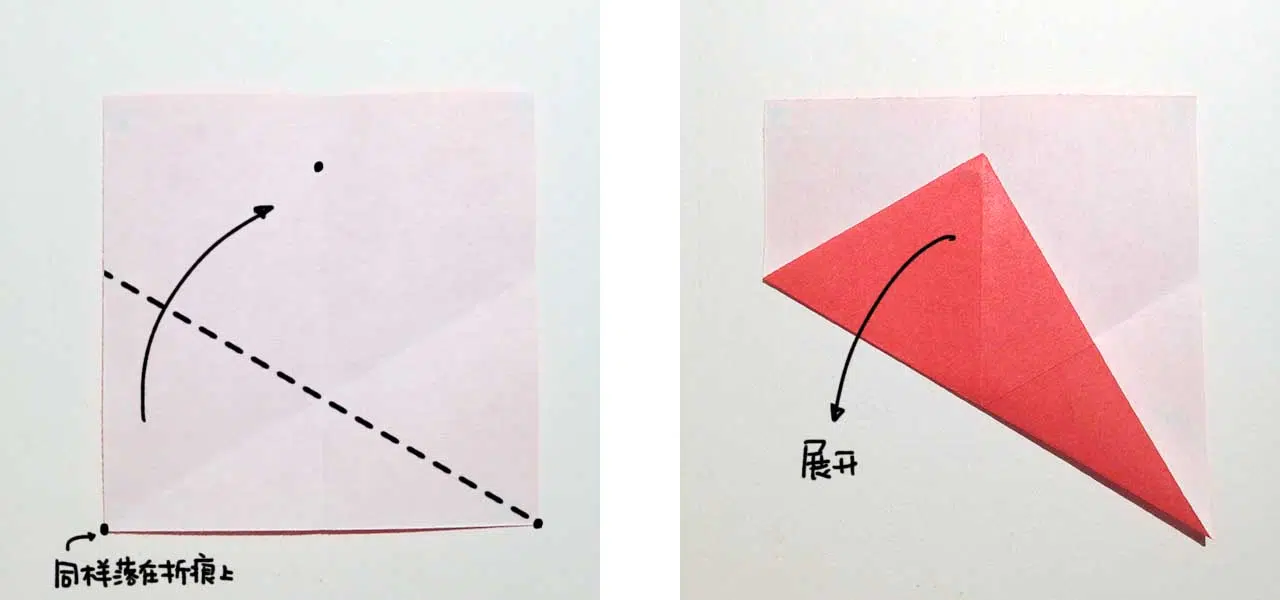 同样落在折痕上
展开